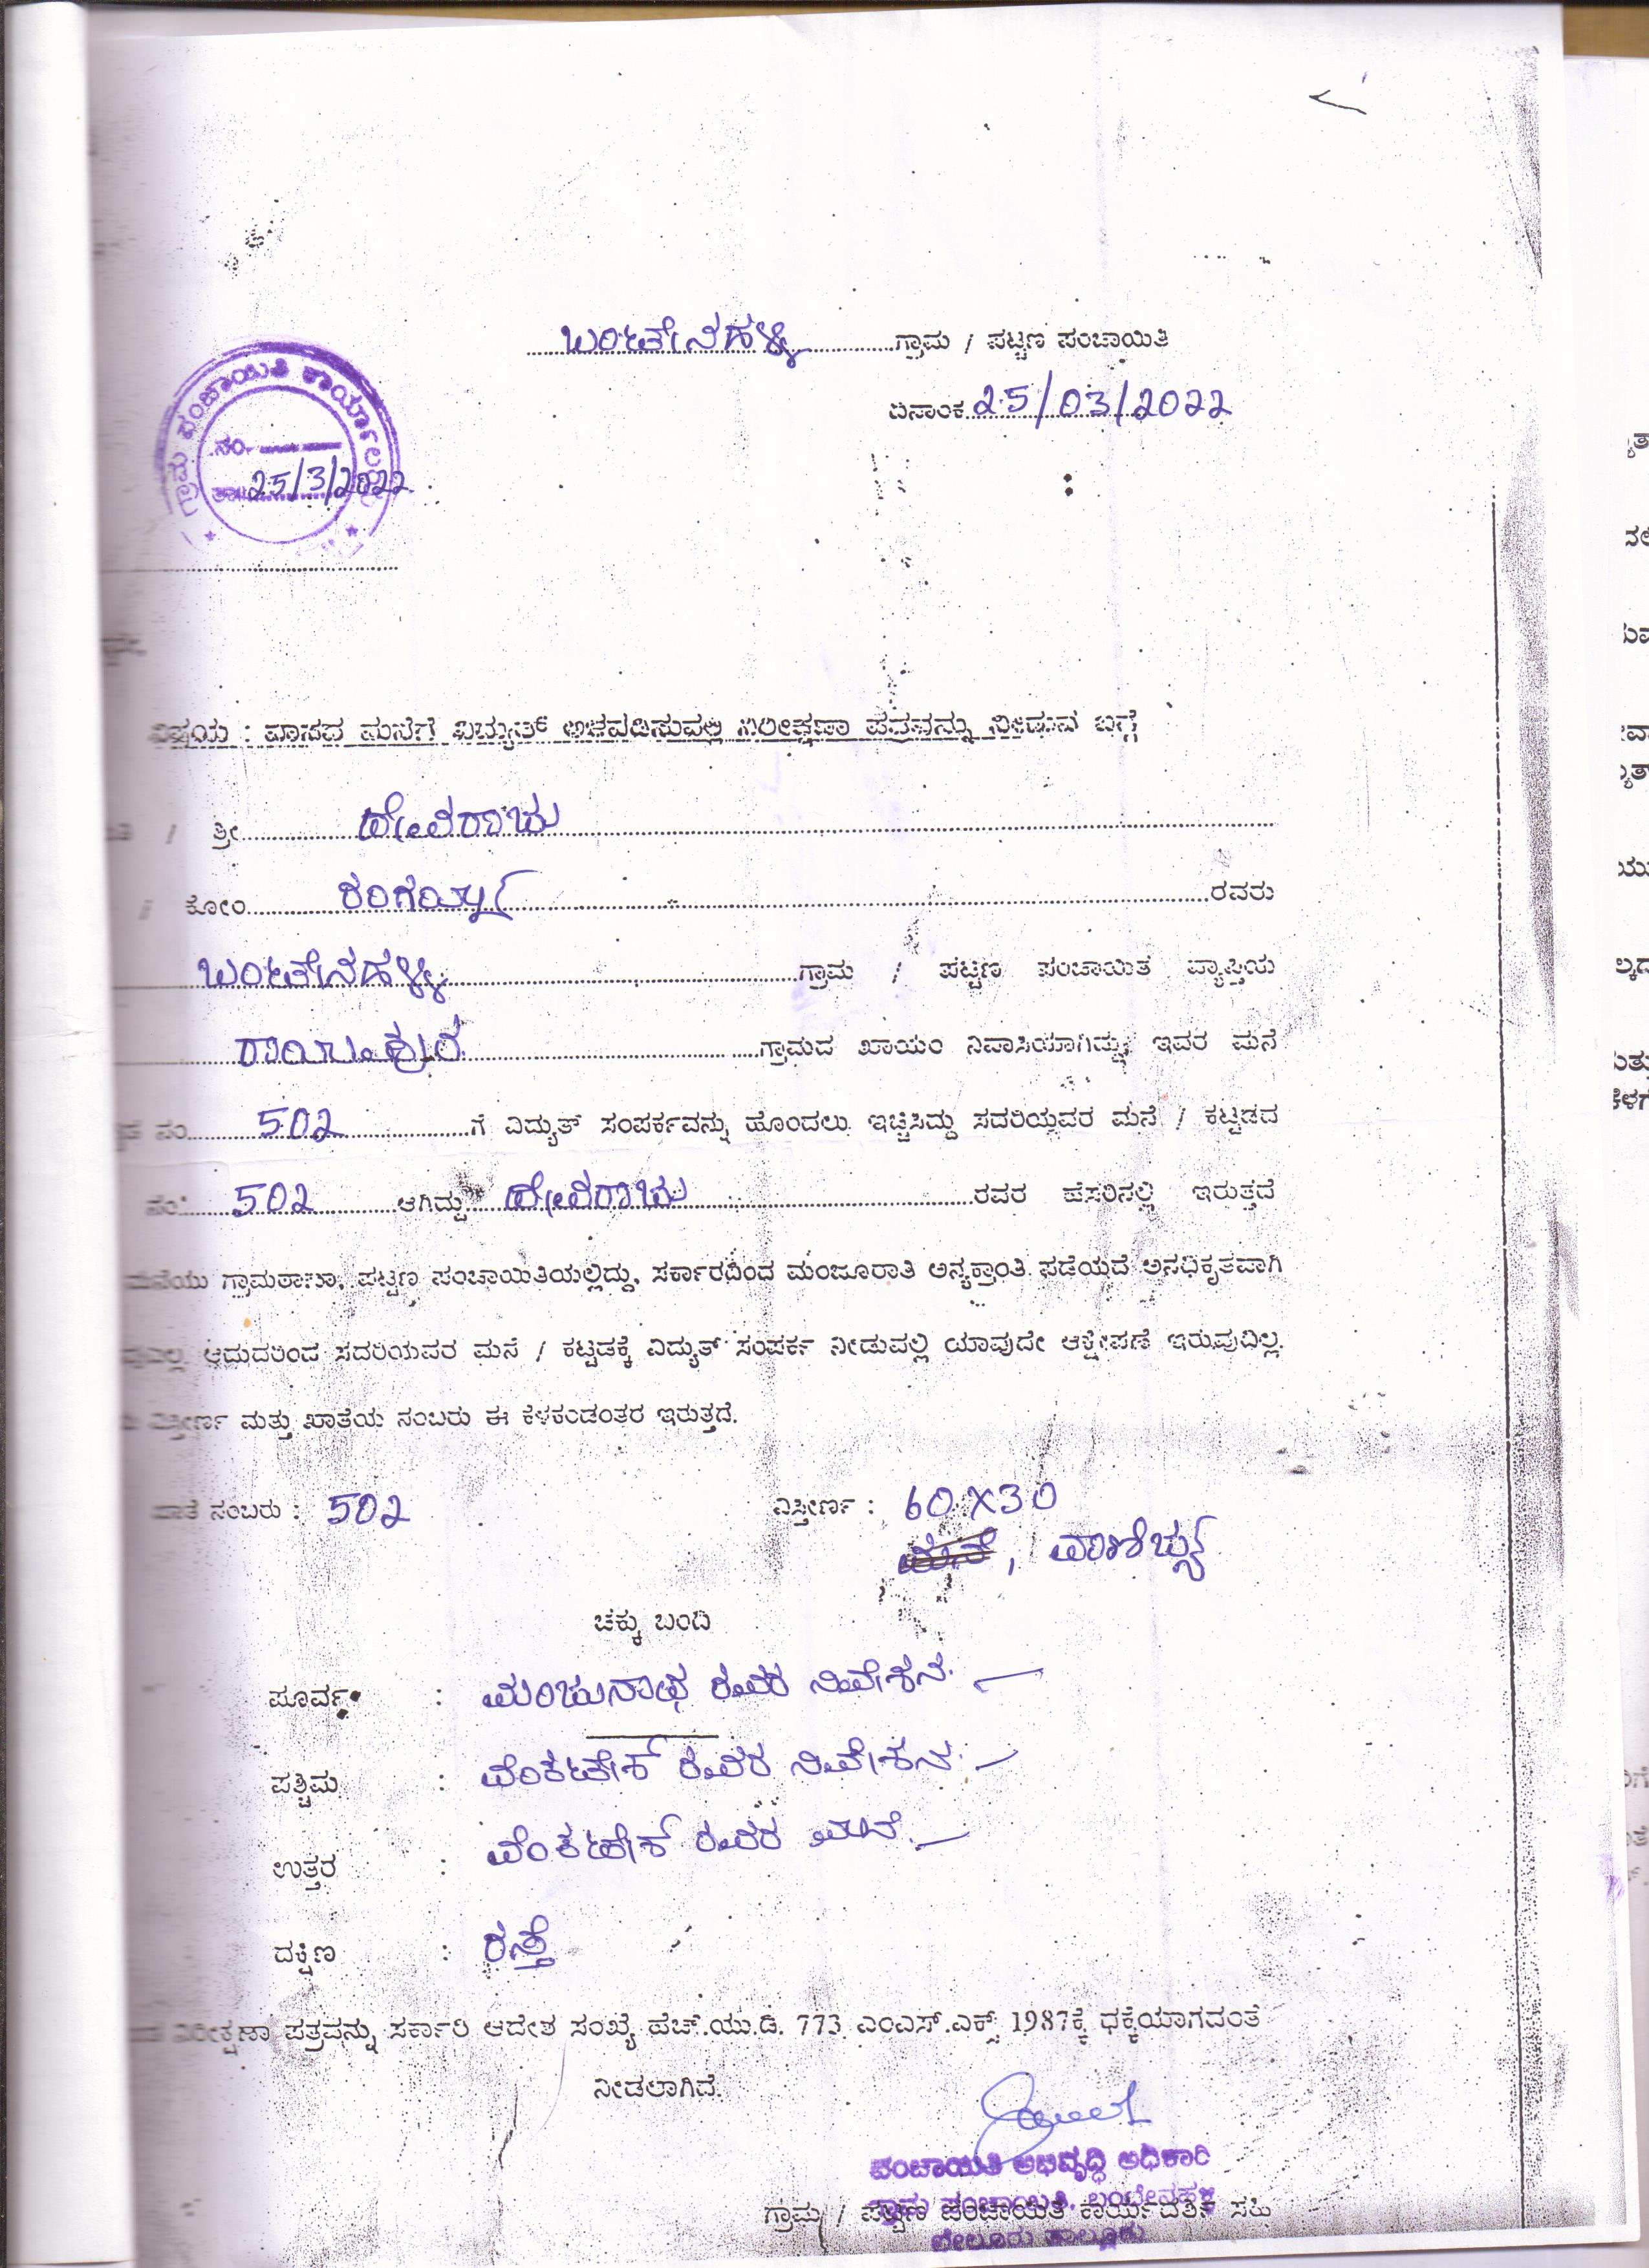 ಬಂಟೇನಹಳ್ಳಿ ಗ್ರಾಮ / ಪಟ್ಟಣ ಪಂಚಾಯಿತಿ
ದಿನಾಂಕ 25/03/2022
ಗ್ರಾಮ ಪಂಚಾಯಿತಿ ಕಾರ್ಯಾಲಯ
ನಂ.
ತಾ: 25/3/2022
ವಿಷಯ : ವಾಸದ ಮನೆಗೆ ವಿದ್ಯುತ್ ಅಳವಡಿಸುವಲ್ಲಿ ನಿರೀಕ್ಷಣಾ ಪತ್ರವನ್ನು ನೀಡುವ ಬಗ್ಗೆ
/ ಶ್ರೀ ದೇವರಾಜು
ಕೋಂ ರಂಗಯ್ಯ ರವರು
ಬಂಟೇನಹಳ್ಳಿ ಗ್ರಾಮ / ಪಟ್ಟಣ ಪಂಚಾಯಿತ ವ್ಯಾಪ್ತಿಯ
ರಾಯಪುರ ಗ್ರಾಮದ ಖಾಯಂ ನಿವಾಸಿಯಾಗಿದ್ದು, ಇವರ ಮನೆ
ನಂ. 502 ಗೆ ವಿದ್ಯುತ್ ಸಂಪರ್ಕವನ್ನು ಹೊಂದಲು ಇಚ್ಚಿಸಿದ್ದು ಸದರಿಯವರ ಮನೆ / ಕಟ್ಟಡದ
ನಂ: 502 ಆಗಿದ್ದು ದೇವರಾಜು ರವರ ಹೆಸರಿನಲ್ಲಿ ಇರುತ್ತದೆ
ಮನೆಯು ಗ್ರಾಮಠಾಣಾ, ಪಟ್ಟಣ ಪಂಚಾಯಿತಿಯಲ್ಲಿದ್ದು, ಸರ್ಕಾರದಿಂದ ಮಂಜೂರಾತಿ ಅನ್ಯಕ್ರಾಂತಿ ಪಡೆಯದೆ ಅನಧಿಕೃತವಾಗಿ
ಆದುದರಿಂದ ಸದರಿಯವರ ಮನೆ / ಕಟ್ಟಡಕ್ಕೆ ವಿದ್ಯುತ್ ಸಂಪರ್ಕ ನೀಡುವಲ್ಲಿ ಯಾವುದೇ ಆಕ್ಷೇಪಣೆ ಇರುವುದಿಲ್ಲ.
ವಿಸ್ತೀರ್ಣ ಮತ್ತು ಖಾತೆಯ ನಂಬರು ಈ ಕೆಳಕಂಡಂತರ ಇರುತ್ತದೆ.
ಖಾತೆ ನಂಬರು : 502 ವಿಸ್ತೀರ್ಣ : 60X30
ಮನೆ, ವಾಣಿಜ್ಯ
ಚಕ್ಕು ಬಂದಿ
ಪೂರ್ವ : ಮಂಜುನಾಥ ರವರ ನಿವೇಶನ
ಪಶ್ಚಿಮ : ವೆಂಕಟೇಶ್ ರವರ ನಿವೇಶನ
ಉತ್ತರ : ವೆಂಕಟೇಶ್ ರವರ ಮನೆ
ದಕ್ಷಿಣ : ರಸ್ತೆ
ನಿರೀಕ್ಷಣಾ ಪತ್ರವನ್ನು ಸರ್ಕಾರಿ ಆದೇಶ ಸಂಖ್ಯೆ ಹೆಚ್.ಯು.ಡಿ. 773 ಎಂಎಸ್.ಎಕ್ಸ್ 1987ಕ್ಕೆ ಧಕ್ಕೆಯಾಗದಂತೆ
ನೀಡಲಾಗಿದೆ.
ಪಂಚಾಯಿತಿ ಅಭಿವೃದ್ಧಿ ಅಧಿಕಾರಿ
ಗ್ರಾಮ ಪಂಚಾಯಿತಿ, ಬಂಟೇನಹಳ್ಳಿ
ಗ್ರಾಮ / ಪಟ್ಟಣ ಪಂಚಾಯಿತಿ ಕಾರ್ಯದರ್ಶಿ ಸಹಿ
ಬೇಲೂರು ತಾಲ್ಲೂಕು